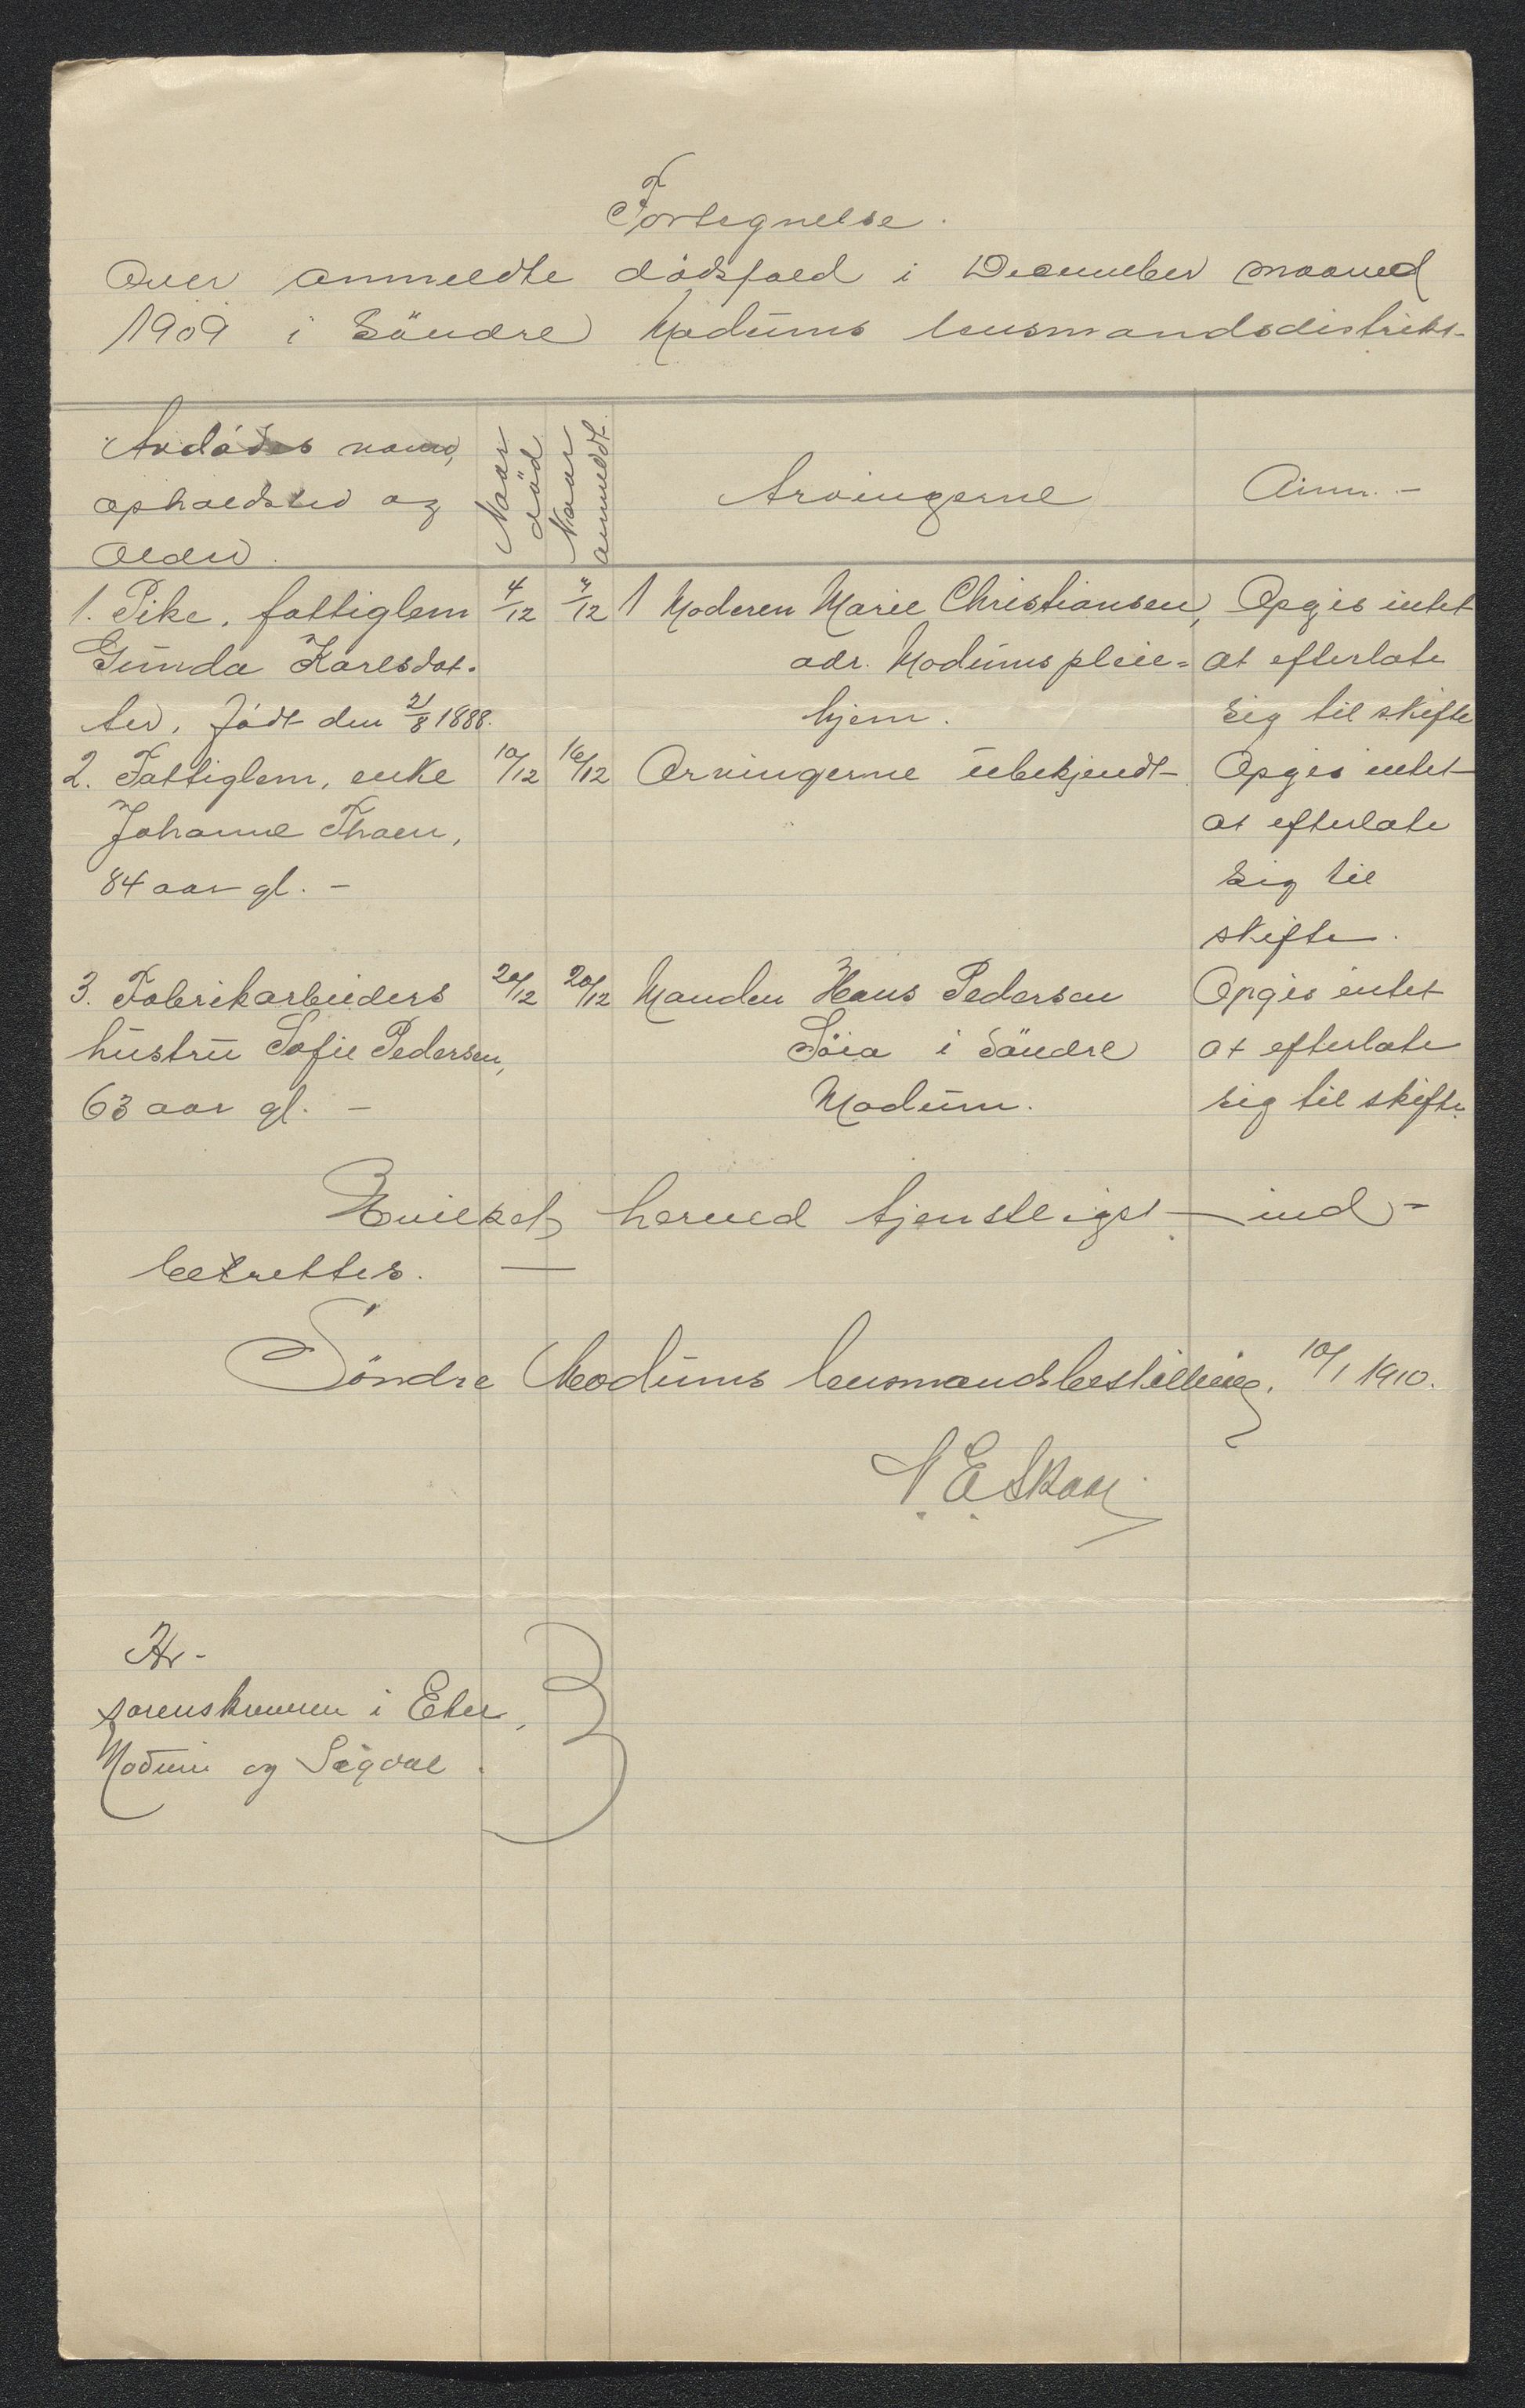 Fortegnelse.
Over anmeldte dödsfald i December maaned
1909 i Söndre Modums lensmandsdistrikt-
Avdödes navn,
opholdsted og
Alder.
Naar
död
Naar
anmeldt.
Arvingerne
Anm. -
1. Pike, fattiglem 4/12 4/12 1 Moderen Marie Christiansen, Opgis intet
Gunda Karlsdat- adr. Modums pleie= at efterlate
ter, født den 21/8 1888. hjem. sig til skifte
2. Fattiglem, enke 10/12 16/12 Arvingerne ubekjendt Opgis intet
Johanne Thoen, at efterlate
84 aar gl. - sig til
skifte.
3. Fabrikarbeiders 20/12 20/12 Manden Hans Pedersen Opgis intet
hustru Sofie Pedersen, i Söndre at efterlate
63 aar gl. - Modum. sig til skifte.
Hvilket herved tjenstligst ind-
berettes. —
Söndre Modums lensmandsbestilling, 10/1 1910.
N. E. Skaar
Hr.
sorenskriveren i Eker,
Modum og Sigdal.